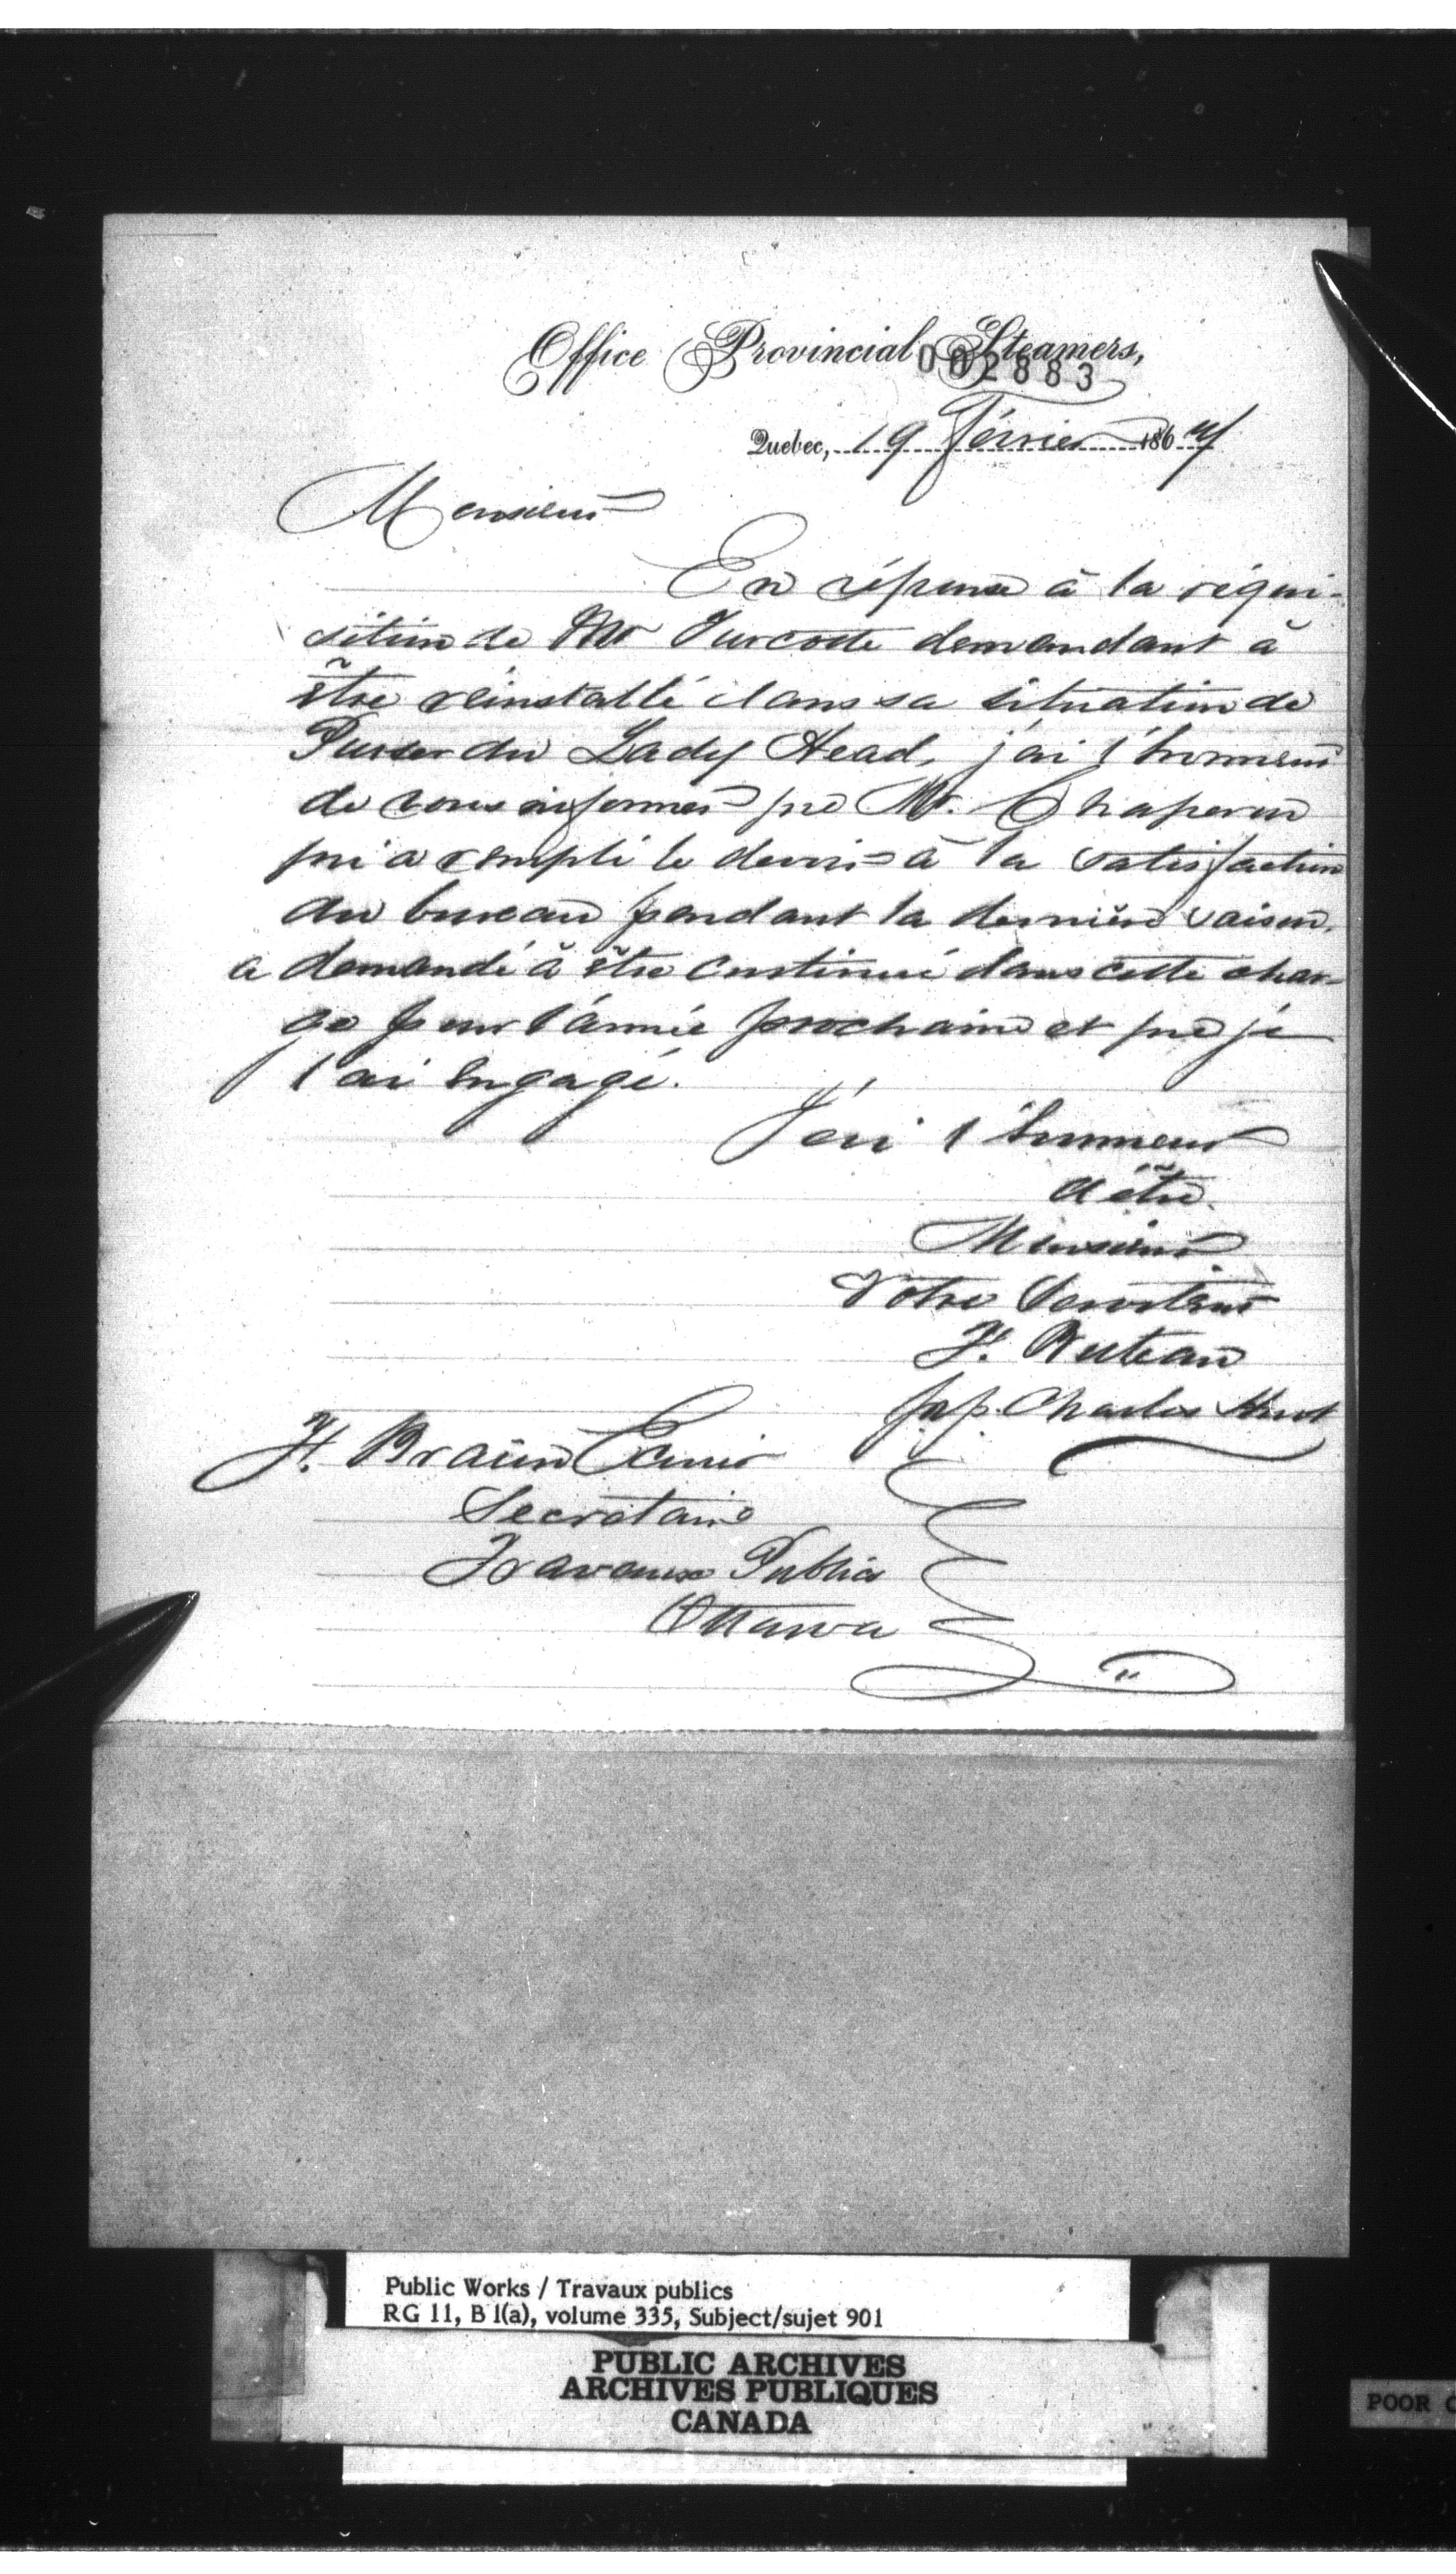 Office Provincial Steamers,
002883
Quebec, 19 Février 1867
Monsieur
En réponse à la réqui-
sition de Mr Turcotte demandant à
être réinstallé dans sa situation de
Purser du Lady Head, j'ai l'honneur
de vous informer que Mr. Chaperon
qui a rempli le devoir à la satisfaction
du bureau pendant la dernière saison,
a demandé à être continué dans cette char-
ge pour l'année prochaine et que je
l'ai engagé.
J'ai l'honneur
d'être.
Monsieur
Votre Serviteur
F. Buteau
Charles
F. Braün Ecuier
Secrétaire
Travaux Publics
Ottawa
Public Works / Travaux publics
RG 11, B 1(a), volume 335, Subject/sujet 901
PUBLIC ARCHIVES
ARCHIVES PUBLIQUES
CANADA
POOR